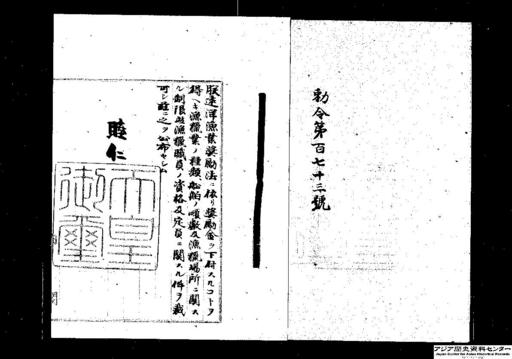 勅令第百七十三號
朕遠洋漁業奨勵法ニ依リ奨勵金ヲ下付スルコトヲ
得ヘキ漁獵業ノ種類船舶ノ噸數及漁獵場所ニ關ス
ル制限竝漁獵職員ノ資格及定員ニ關スル件ヲ裁
可シ茲ニ之ヲ公布セシム
睦仁
天皇
御璽
アジア歴史資料センター
Japan Center for Asian Historical Records